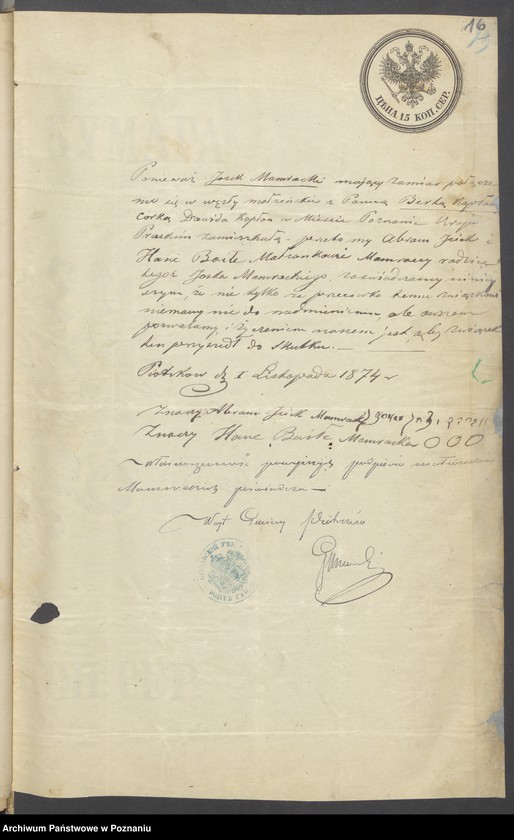 16
ЦѢНА 15 КОП. СЕР.
Ponieważ Josek Mamrocki mający zamiar połącze
nia się w węzły małżeńskie z Panną Bertą Kapłan
córką Dawida Kapłan w Mieście Poznaniu
Pruskim zamieszkałą – przeto my Abram Josek i
Hane Baile Małżonkowie Mamroccy rodzice
tegoż Joska Mamrockiego, zaświadczamy niniej
szym, że nie tylko że przeciwko temu związkowi
niemamy nic do nadmienienia, ale owszem
pozwalamy, i życzeniem naszem jest aby związek
ten przyszedł do skutku. —
Piotrków d. 1 Listopada 1874 r
Znaczy Abram Josek Mamrocki
Znaczy Hane Baile Mamrocka OOO
Własnoręczność powyższych podpisów małżonków
Mamrockich poświadcza —
Wójt Gminy
Archiwum Państwowe w Poznaniu